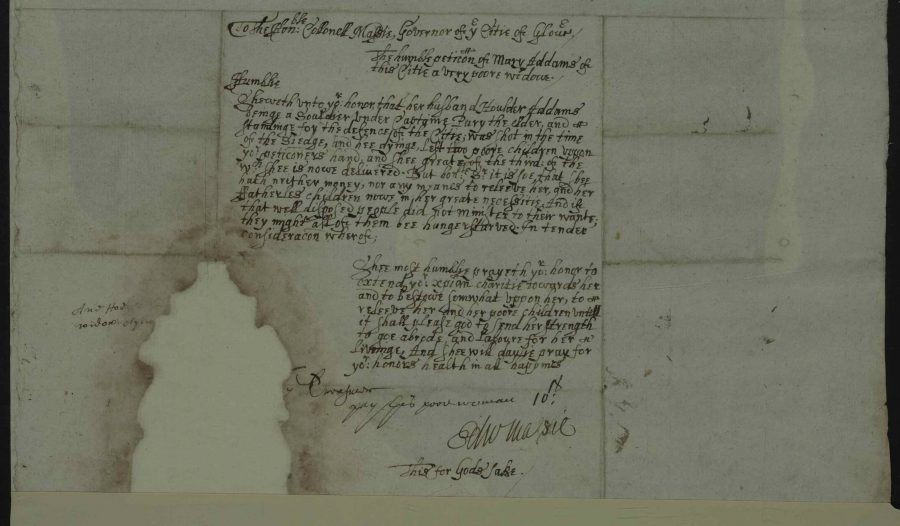 To the Honble: Collonell Massie, Governor of ye Citie of Glouc
The humble peticon of Mary Addams of
this Citie a very poore widowe.
Humblie
Sheweth vnto yr: honor, that her husband Houlder Addams
beinge a Souldier vnder Captaine Pury the elder, and
standinge for the defence of the Citie; was shot in the time
of the Siedge, and hee dyinge, left two poore children vppon
yor: peticoners hand, and shee greate of the third: of the
wch shee is nowe delivered. But soe it is that shee
hath neither money, nor any meanes to releeve her, and her
Fatherles children nowe in her great necessitie; And if
that well disposed people did not minister to their wants,
they might all of them bee hungerstarved. In tender
consideracon wherof;
Shee most humblie prayeth yor: honor to
extend yor: xpian charitie towards her
and to bestowe somwhat vppon her, to
releeve her and her poore children vntill
it shall please god to send her strength
to goe abrode, and labour for her
livinge, And shee will daylie pray for
yor: honors health in all happines
And
widow
Treasurer
pay this poore woman 10s
Edw Massie
This for Gods sake.